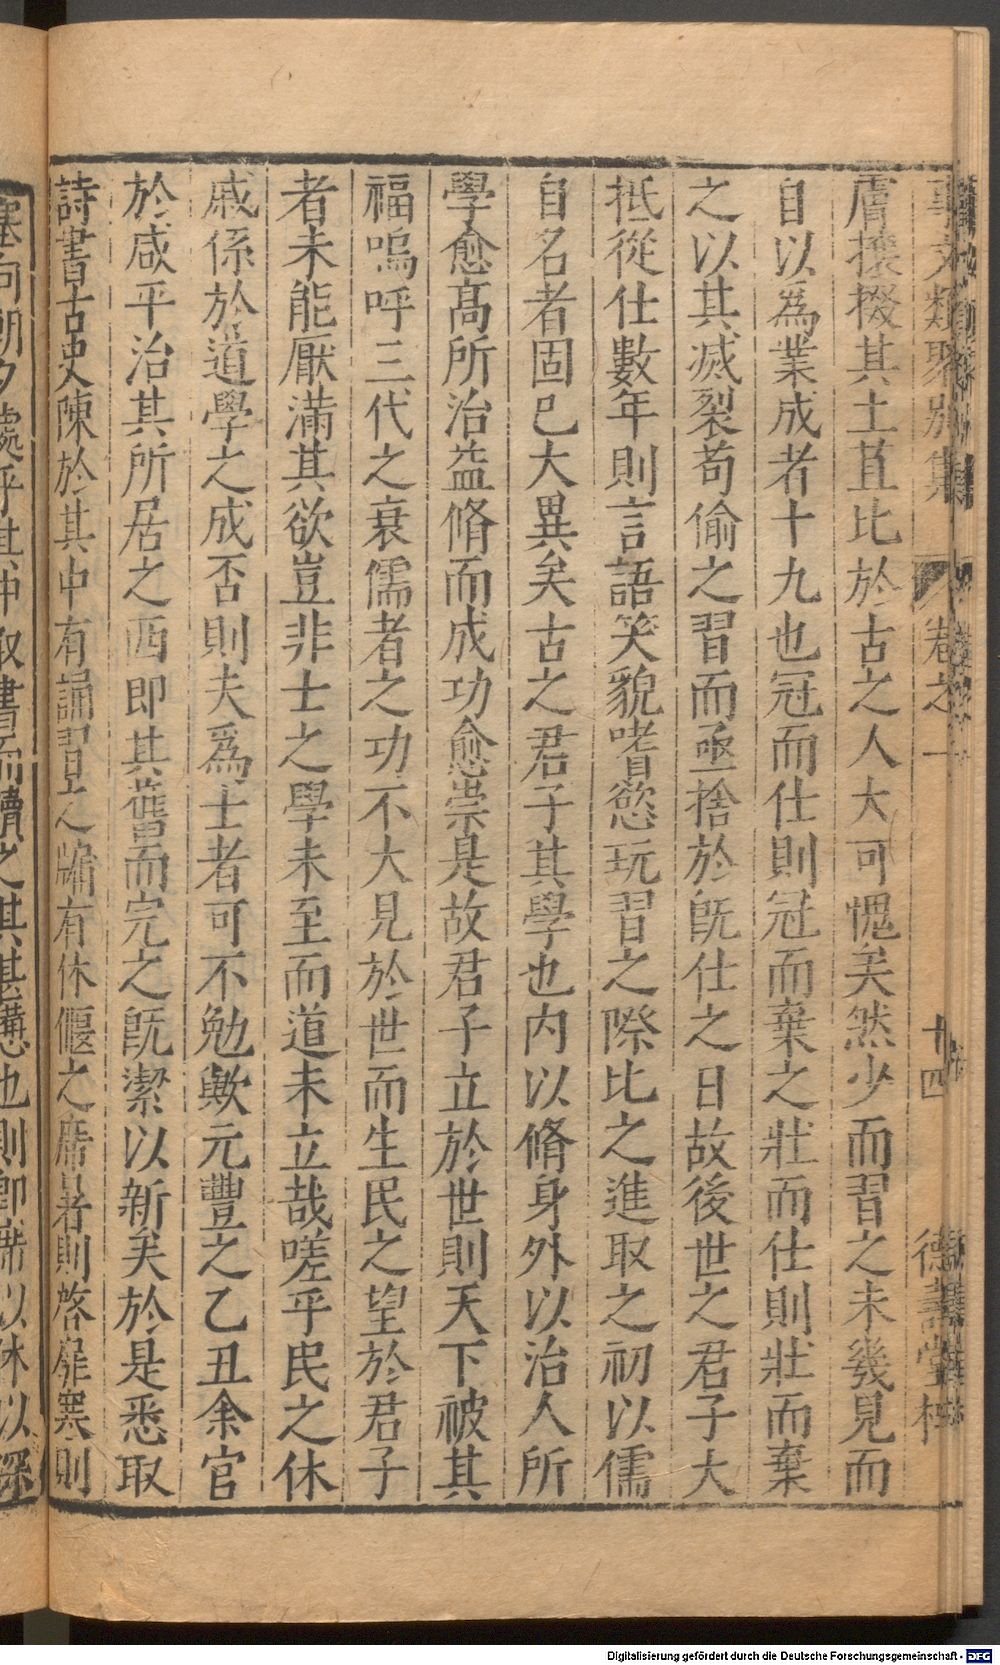 事文類聚別集 卷之一 十四 德壽堂梓
膚攘掇其土苴比於古之人大可愧矣然少而習之未幾見而
自以爲業成者十九也冠而仕則冠而棄之壯而仕則壯而棄
之以其滅裂苟偷之習而亟捨於旣仕之日故後世之君子大
抵從仕數年則言語笑貌嗜慾玩習之際比之進取之初以儒
自名者固已大異矣古之君子其學也内以脩身外以治人所
學愈髙所治益脩而成功愈崇是故君子立於世則天下被其
福嗚呼三代之衰儒者之功不大見於世而生民之望於君子
者未能厭滿其欲豈非士之學未至而道未立哉嗟乎民之休
戚係於道學之成否則夫爲士者可不勉歟元豐之乙丑余官
於咸平治其所居之西即其舊而完之旣潔以新矣於是悉取
詩書古史陳於其中有誦習之牖有休偃之席暑則啓扉寒則
塞向朝夕處乎其中取書而讀之其甚憊也則卽席以休以深
Digitalisierung gefördert durch die Deutsche Forschungsgemeinschaft - DFG